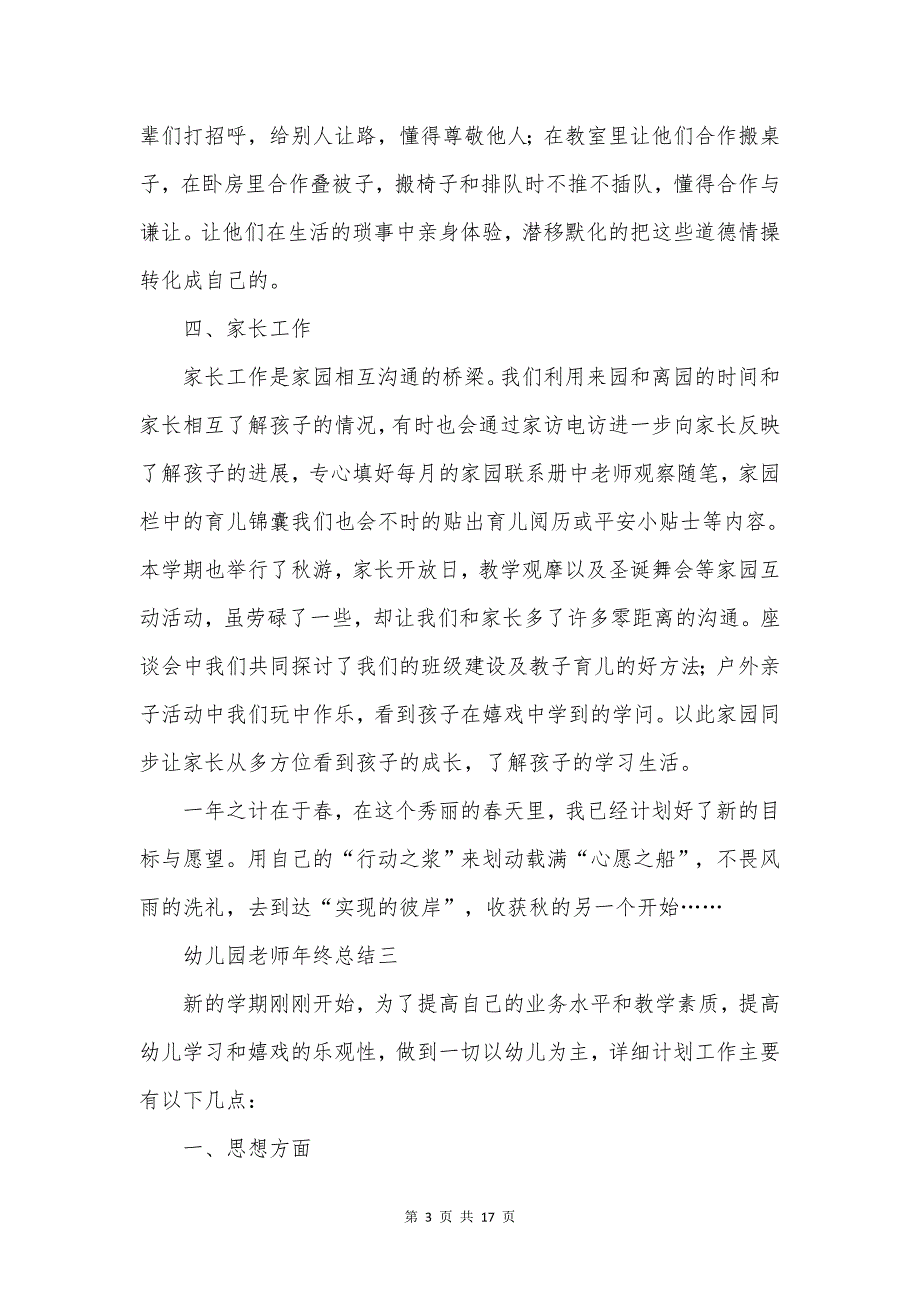 辈们打招呼，给别人让路，懂得尊敬他人；在教室里让他们合作搬桌
子，在卧房里合作叠被子，搬椅子和排队时不推不插队，懂得合作与
谦让。让他们在生活的琐事中亲身体验，潜移默化的把这些道德情操
转化成自己的。
四、家长工作
家长工作是家园相互沟通的桥梁。我们利用来园和离园的时间和
家长相互了解孩子的情况，有时也会通过家访电访进一步向家长反映
了解孩子的进展，专心填好每月的家园联系册中老师观察随笔，家园
栏中的育儿锦囊我们也会不时的贴出育儿阅历或平安小贴士等内容。
本学期也举行了秋游，家长开放日，教学观摩以及圣诞舞会等家园互
动活动，虽劳碌了一些，却让我们和家长多了许多零距离的沟通。座
谈会中我们共同探讨了我们的班级建设及教子育儿的好方法；户外亲
子活动中我们玩中作乐，看到孩子在嬉戏中学到的学问。以此家园同
步让家长从多方位看到孩子的成长，了解孩子的学习生活。
一年之计在于春，在这个秀丽的春天里，我已经计划好了新的目
标与愿望。用自己的“行动之浆”来划动载满“心愿之船”，不畏风
雨的洗礼，去到达“实现的彼岸”，收获秋的另一个开始……
幼儿园老师年终总结三
新的学期刚刚开始，为了提高自己的业务水平和教学素质，提高
幼儿学习和嬉戏的乐观性，做到一切以幼儿为主，详细计划工作主要
有以下几点：
一、思想方面
第 3 页 共 17 页